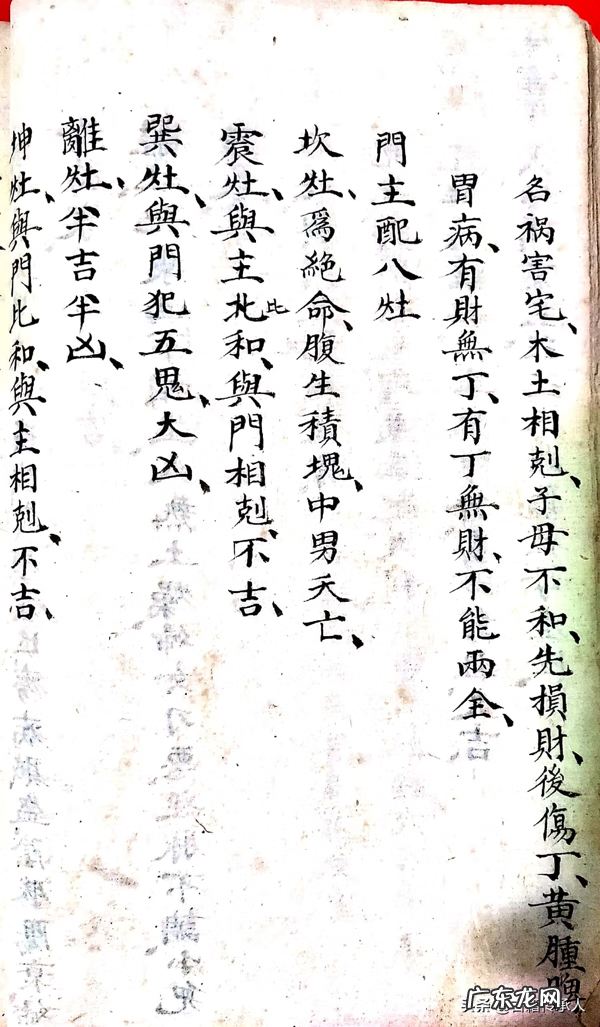 名祸害宅、木土相剋、子母不和、先損財、後傷丁、黃腫
胃病、有財無丁、有丁無財、不能兩全、
門主配八灶
坎灶、爲絕命、腹生積塊、中男夭亡、
震灶、與主北比和、與門相剋、不吉、
巽灶、與門犯五鬼、大凶、
離灶、半吉半凶、
坤灶、與門比和、與主相剋、不吉、
广东龙网
头条
承人